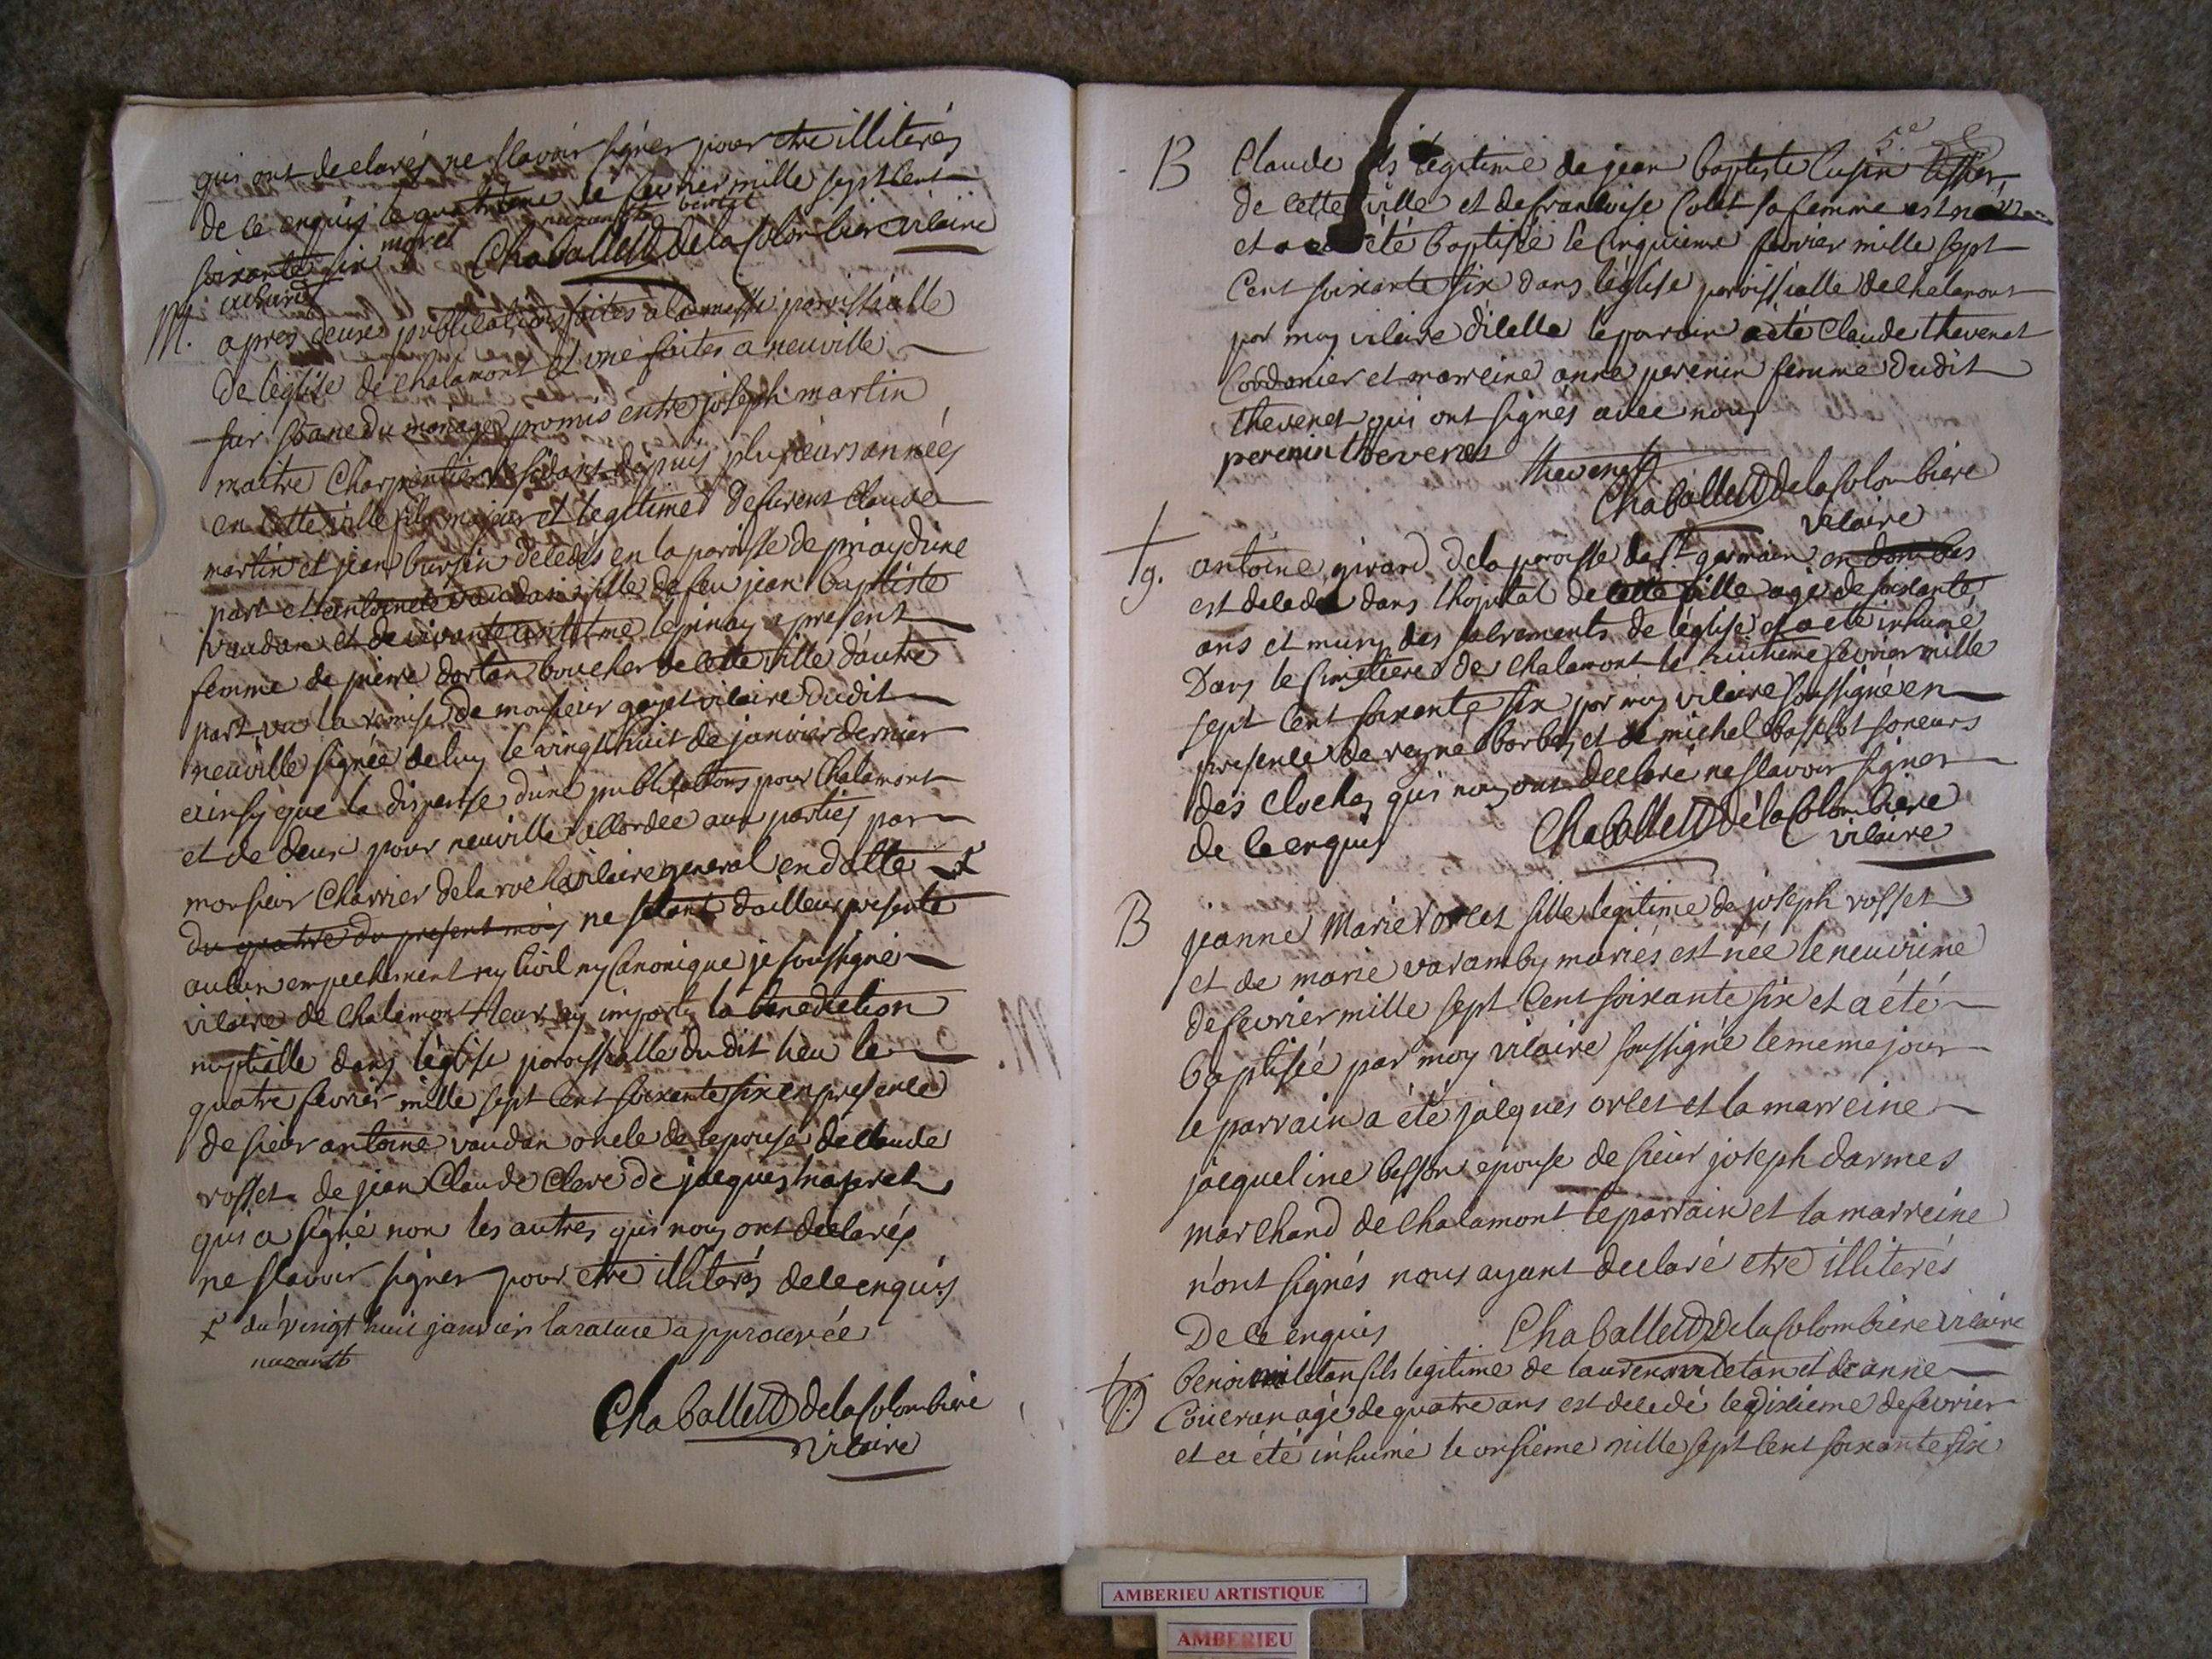 qui ont declarés ne sçavoir signer pour etre illiterés
de ce enquis le quatrieme de fevrier mille sept cent
soixante six moret nuzareth
Chaballetd delaColombiere vicaire
M. apres deux publications faites a la messe parroissialle
de l'église de Chalamont et une faites a neuville
sur du mariage promis entre joseph martin
maitre Charpentier residant depuis plusieurs années
en cette ville fils majeur et legitime de furent Claude
martin et jean decedés en la paroisse de d'une
part et antoinete vaudan fille de feu jean baptiste
vaudan et de vivante l'epinay a present
femme de pierre dartan boucher de cette ville d'autre
part vu la remise de monsieur vicaire dudit
neuville signée de luy le vingt huit de janvier dernier
ainsy que la dispense d'une publications pour Chalamont
et de deux pour neuville accordée aux parties par
monsieur Charrier de la roche vicaire general en datte
du quatre du present mois ne s'etant d'ailleurs presenté
aucun empechement ny Civil ny Canonique je soussigné
vicaire de Chalamont leur ay imparti la benediction
nuptialle dans l'église paroissialle dudit lieu le
quatre fevrier mille sept cent soixante six en presence
de sieur antoine vaudan oncle de l'epouse de Claude
rosset de jean Claude Clere de jacques
qui a signé non les autres qui nous ont declarés
ne sçavoir signer pour etre illiterés de ce enquis
du vingt huit janvier la rature approuvée
nuzareth
Chaballetd delaColombiere
vicaire
5e
B Claude fils legitime de jean baptiste Cusin tissier
de cette ville et de francoise Colet sa femme est né
et a été baptisé le cinquieme fevrier mille sept
Cent soixante six dans l'église paroissialle de Chalamont
par moy vicaire d'icelle le parain a été Claude thevenet
Cordonier et marreine anne perenin femme dudit
thevenet qui ont signés avec nous
perenin thevenet thevenet
Chaballetd delaColombiere
vicaire
g. antoine girard de la paroisse de St germain en dombes
est decedé dans l'hopital de cette ville agé de soixante
ans et muny des sacrements de l'église et a été inhumé
Dans le Cimetiere de Chalamont le huitieme fevrier mille
sept cent soixante six par moy vicaire soussigné en
presence de reyné borbes et de michel soneurs
des cloches qui nous ont declaré ne sçavoir signer
de ce enquis Chaballetd delaColombiere
vicaire
B jeanne Marie rosset fille legitime de joseph rosset
et de marie varamby mariés est née le neuvieme
de fevrier mille sept cent soixante six et a été
baptisée par moy vicaire soussigné le meme jour
le parrain a été jacques orset et la marreine
jacqueline besson epouse de sieur joseph darmes
marchand de Chalamont le parrain et la marreine
n'ont signés nous ayant declaré etre illiterés
De ce enquis Chaballetd delaColombiere vicaire
benoit fils legitime de laurens et de anne
agé de quatre ans est decedé le dixieme de fevrier
et a été inhumé le onsieme mille sept cent soixante six
AMBERIEU ARTISTIQUE
AMBERIEU